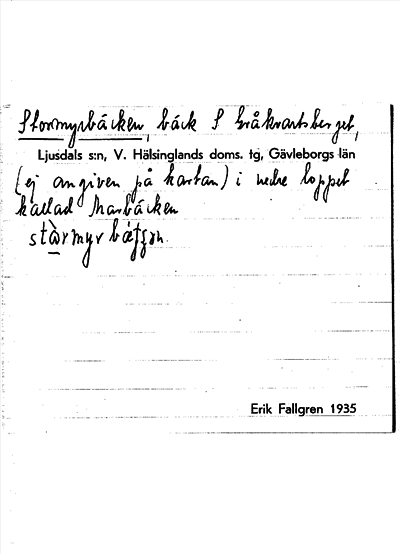 Stormyrbäcken, bäck S Gråkvartsberget,
Ljusdals s:n, V. Hälsinglands doms. tg, Gävleborgs län
(ej angiven på kartan) i nedre loppet
kallad Marbäcken
Erik Fallgren 1935